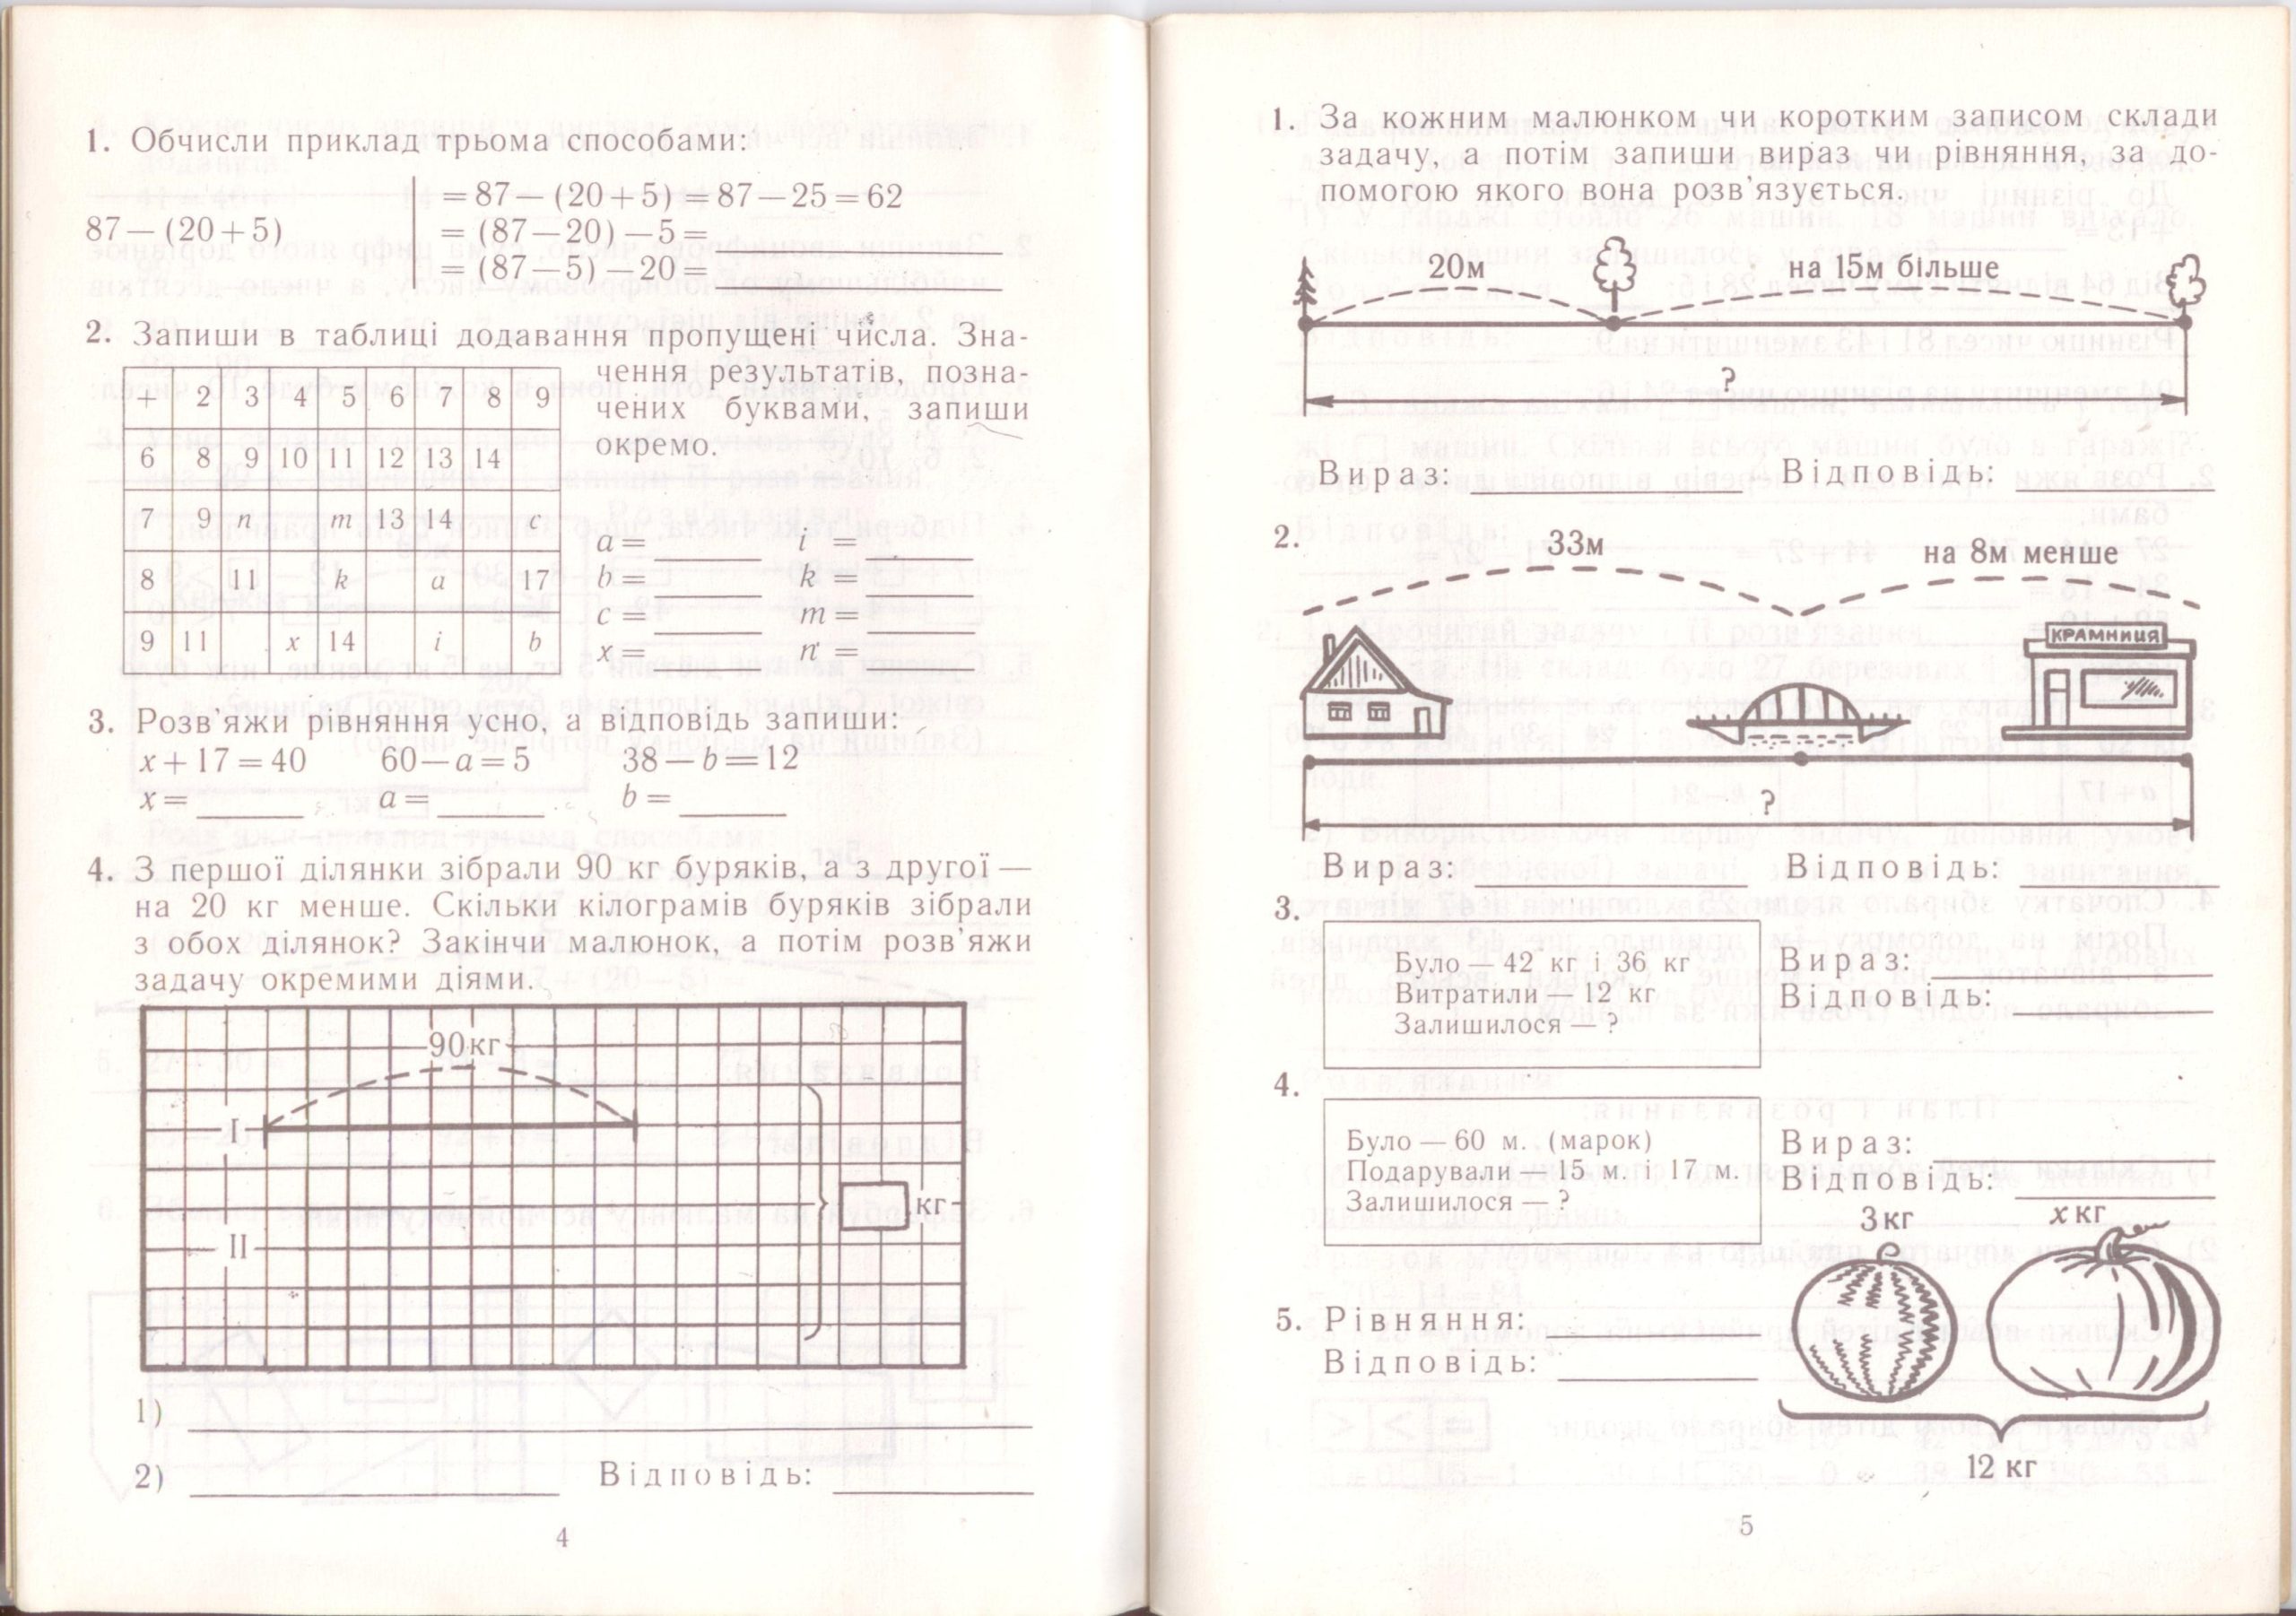 1. Обчисли приклад трьома способами:
87 — (20 + 5)
= 87 — (20 + 5) = 87 — 25 = 62
= (87 — 20) — 5 =
= (87 — 5) — 20 =
2. Запиши в таблиці додавання пропущені числа. Зна-
чення результатів, позна-
чених буквами, запиши
окремо.
+ 2 3 4 5 6 7 8 9
6 8 9 10 11 12 13 14
7 9 n m 13 14 c
8 11 k a 17
9 11 x 14 i b
a = i =
b = k =
c = m =
x = n =
3. Розв'яжи рівняння усно, а відповідь запиши:
x + 17 = 40 60 — a = 5 38 — b = 12
x = a = b =
4. З першої ділянки зібрали 90 кг буряків, а з другої —
на 20 кг менше. Скільки кілограмів буряків зібрали
з обох ділянок? Закінчи малюнок, а потім розв'яжи
задачу окремими діями.
90 кг
I
кг
II
1)
2) Відповідь:
4
1. За кожним малюнком чи коротким записом склади
задачу, а потім запиши вираз чи рівняння, за до-
помогою якого вона розв'язується.
20м на 15м більше
?
Вираз: Відповідь:
2.
33м на 8м менше
КРАМНИЦЯ
?
Вираз: Відповідь:
3.
Було — 42 кг і 36 кг
Витратили — 12 кг
Залишилося — ?
Вираз:
Відповідь:
4.
Було — 60 м. (марок)
Подарували — 15 м. і 17 м.
Залишилося — ?
Вираз:
Відповідь:
3 кг x кг
5. Рівняння:
Відповідь:
12 кг
5